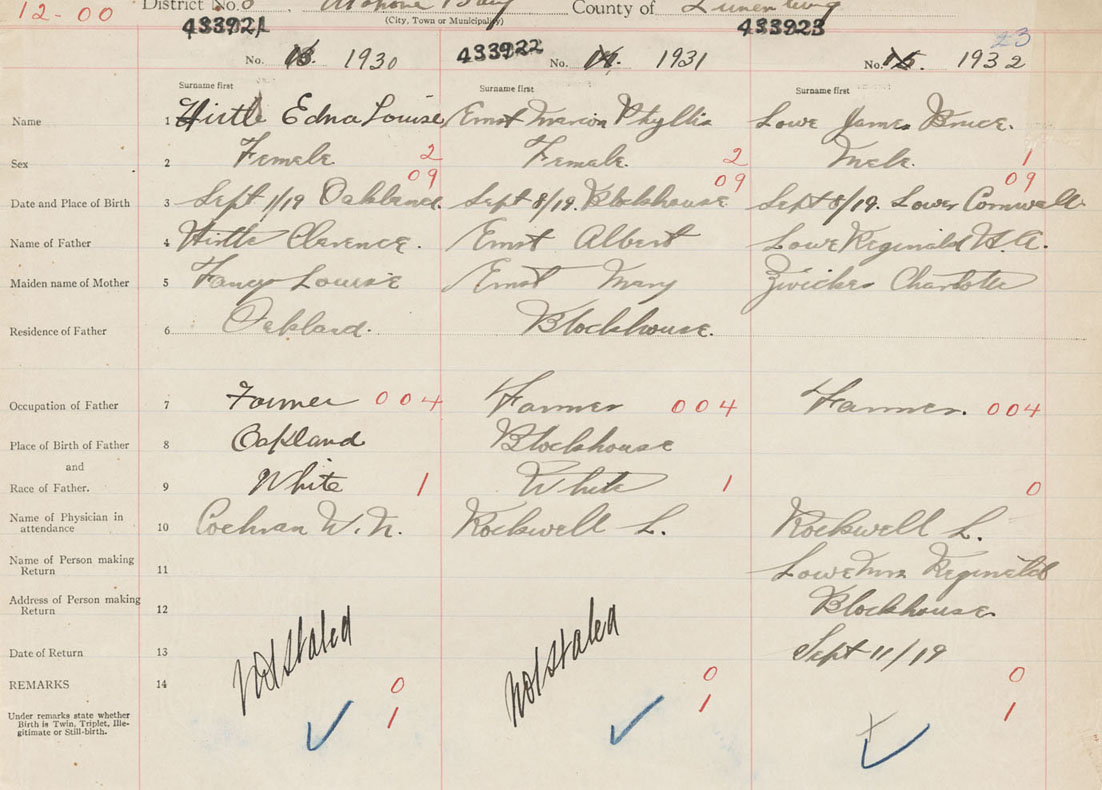 12-00 District No. 8 Mahone Bay County of Lunenburg
(City, Town or Municipality)
433921 433922 433923
23
No. 13. 1930 No. 14. 1931 No. 15. 1932
Surname first Surname first Surname first
Name 1 Hirtle Edna Louise Ernst Marion Phyllis Lowe James Bruce.
Sex 2 Female 2 Female. 2 Male. 1
09 09 09
Date and Place of Birth 3 Sept 1/19 Oakland. Sept 8/19. Blockhouse Sept 8/19. Lower Cornwall
Name of Father 4 Hirtle Clarence. Ernst Albert Lowe Reginald H. A.
Maiden name of Mother 5 Fancy Louise Ernst Mary Zwicker Charlotte
Residence of Father 6 Oakland. Blockhouse.
Occupation of Father 7 Farmer 004 Farmer 004 Farmer. 004
Place of Birth of Father 8 Oakland Blockhouse
and
Race of Father. 9 White 1 White 1 0
Name of Physician in
attendance 10 Cochran W. N. Rockwell L. Rockwell L.
Name of Person making
Return 11 Lowe Mrs Reginald
Address of Person making
Return 12 Blockhouse.
Date of Return 13 Not stated Not stated Sept 11/19
REMARKS 14 0 0 0
Under remarks state whether
Birth is Twin, Triplet, Ille-
gitimate or Still-birth. 1 1 1